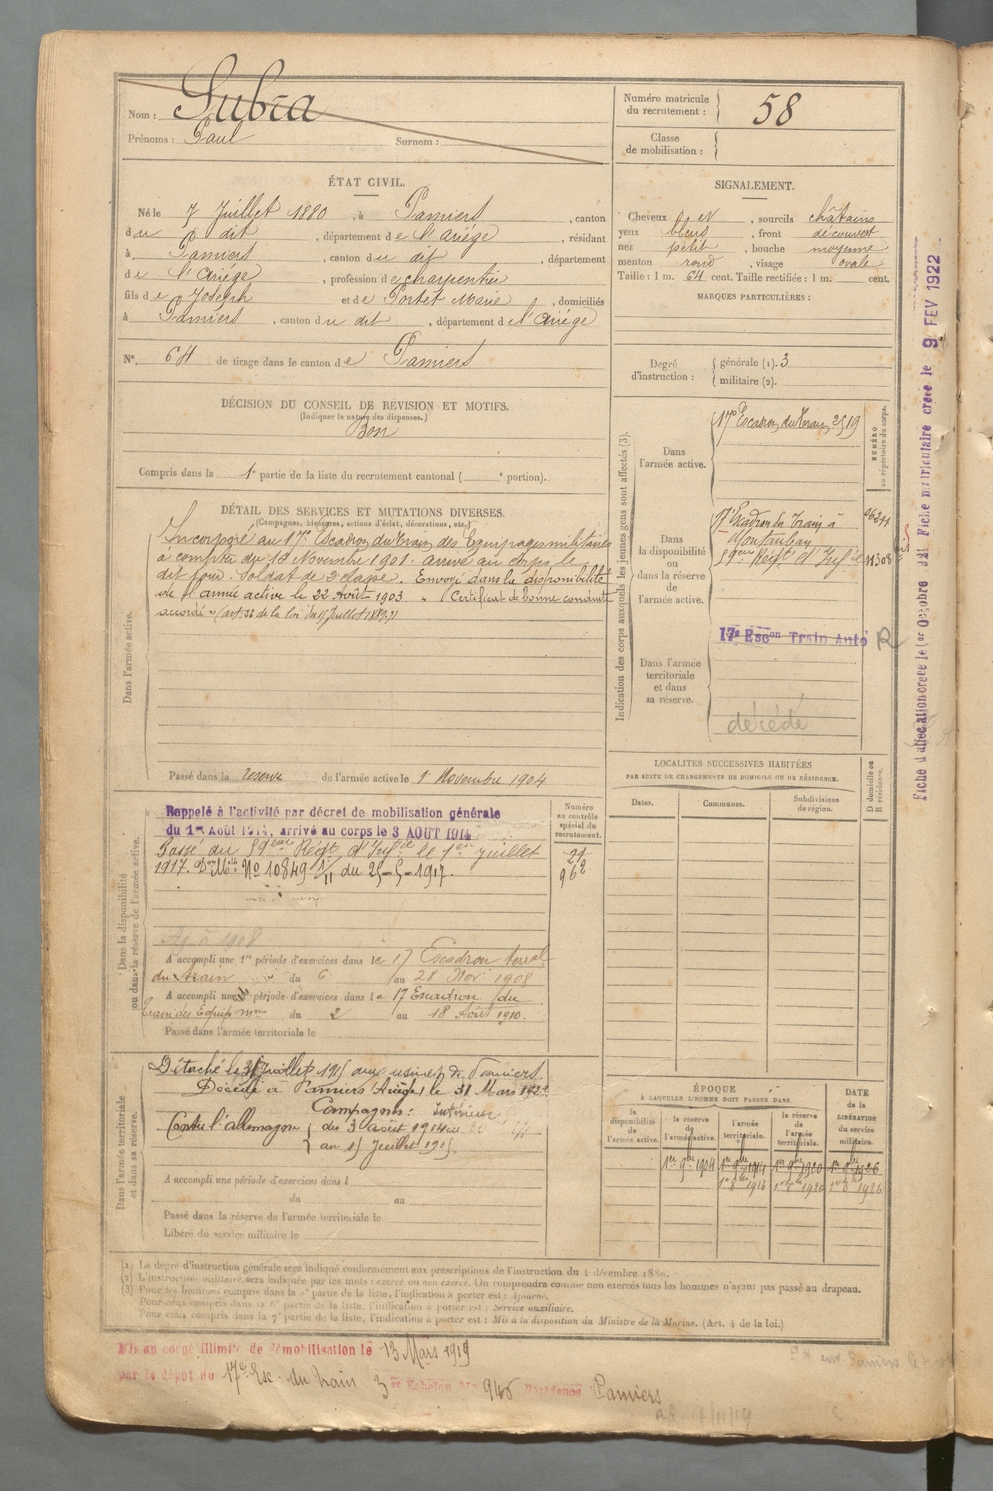 Nom : Subra
Prénoms : Paul Surnom :
Numéro matricule du recrutement : 58
Classe de mobilisation :
ÉTAT CIVIL.
Né le 7 Juillet 1880, à Pamiers, canton
du dit, département de l'Ariége, résidant
à Pamiers, canton du dit, département
de l'Ariége, profession de charpentier
fils de Joseph et de Portet Marie, domiciliés
à Pamiers, canton du dit, département de l'Ariége
N°. 64 de tirage dans le canton de Pamiers
SIGNALEMENT.
Cheveux et, sourcils châtains
yeux bleus, front découvert
nez petit, bouche moyenne
menton rond, visage ovale
Taille : 1 m. 64 cent. Taille rectifiée : 1 m. cent.
MARQUES PARTICULIÈRES :
Degré d'instruction : générale (1). 3
militaire (2).
DÉCISION DU CONSEIL DE REVISION ET MOTIFS.
(Indiquer la nature des dispenses.)
Bon
Compris dans la 1e partie de la liste du recrutement cantonal ( e portion).
DÉTAIL DES SERVICES ET MUTATIONS DIVERSES.
(Campagnes, blessures, actions d'éclat, décorations, etc.)
Dans l'armée active.
Incorporé au 17e Escadron du Train des Equipages militaires
à compter du 16 Novembre 1901. arrivé au corps le
dit jour. Soldat de 2e classe. Envoyé dans la disponibilité
de l'armée active le 22 Août 1903. "Certificat de bonne conduite
accordé" (art. 22 de la loi du 15 Juillet 1889.)
Passé dans la reserve de l'armée active le 1er Novembre 1904
Indication des corps auxquels les jeunes gens sont affectés (3).
NUMÉRO au répertoire du corps.
Dans l'armée active.
17e Escadron du Train 2519
Dans la disponibilité ou dans la réserve de l'armée active.
17e Escadron du Train à
Montauban
59eme Régt d'Infie 11308
17e Escon Train Auto R
Dans l'armée territoriale et dans sa réserve.
décédé
LOCALITÉS SUCCESSIVES HABITÉES
PAR SUITE DE CHANGEMENTS DE DOMICILE OU DE RÉSIDENCE.
Dates. Communes. Subdivisions de région. D domicile ou R résidence.
Dans la disponibilité ou dans la réserve de l'armée active.
Numéro au contrôle spécial du recrutement.
Rappelé à l'activité par décret de mobilisation générale
du 1er Août 1914, arrivé au corps le 3 AOUT 1914
Passé au 59eme Régt d'Infie le 1er Juillet
1917. Don Mle No 10849 1/11 du 25-5-1917.
962
A accompli une 1re période d'exercices dans le 17 Escadron terral
du train du 6 au 28 Nov 1908
A accompli une 2e période d'exercices dans le 17 Escadron du
Train des Equip mres du 2 au 18 Août 1910.
Passé dans l'armée territoriale le
Dans l'armée territoriale et dans sa réserve.
Détaché le 31 Juillet 1915 aux usines de Pamiers
Décédé à Pamiers (Ariège) le 31 Mars 1923.
Campagnes : intérieur
Contre l'allemagne du 3 août 1914 au
au 15 Juillet 1915.
A accompli une période d'exercices dans l
du au
Passé dans la réserve de l'armée territoriale le
Libéré du service militaire le
ÉPOQUE
À LAQUELLE L'HOMME DOIT PASSER DANS
la disponibilité de l'armée active. la réserve de l'armée active. l'armée territoriale. la réserve de l'armée territoriale.
DATE de la LIBÉRATION du service militaire.
1er 9bre 1904 1er 9bre 1914 1er 9bre 1920 1er 9bre 1926
1er 8bre 1914 1er 8bre 1920 1er 8bre 1926
(1) Le degré d'instruction générale sera indiqué conformément aux prescriptions de l'instruction du 4 décembre 1889.
(2) L'instruction militaire sera indiquée par les mots : exercé ou non exercé. On comprendra comme non exercés tous les hommes n'ayant pas passé au drapeau.
(3) Pour les hommes compris dans la 5e partie de la liste, l'indication à porter est : Ajourné.
Pour ceux compris dans la 6e partie de la liste, l'indication à porter est : Service auxiliaire.
Pour ceux compris dans la 7e partie de la liste, l'indication à porter est : Mis à la disposition du Ministre de la Marine. (Art. 4 de la loi.)
Mis en congé illimité de démobilisation le 13 Mars 1919
par le dépôt du 17e Esc. du Train 3er Echelon No 946 Résidence Pamiers
Fiche d'affectation créée le 1er Octobre 1921 Fiche matriculaire créée le 9 FEV 1922